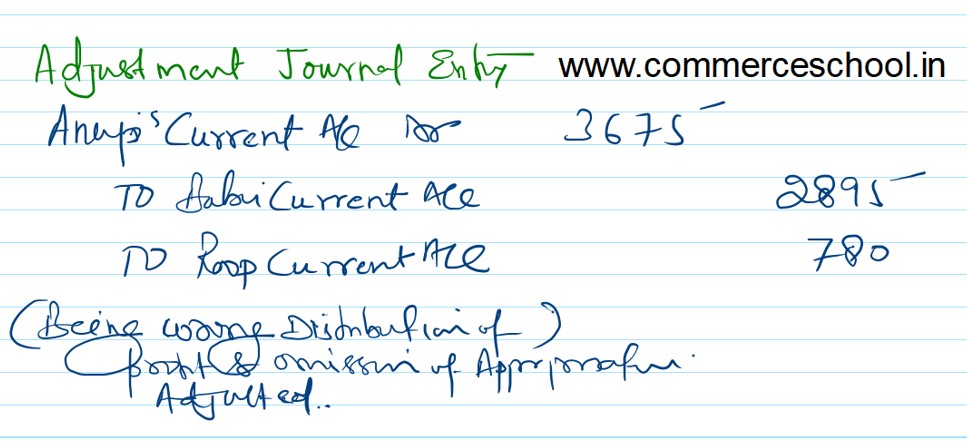 Adjustment Journal Entry www.commerceschool.in
Anup's Current A/c Dr 3675
TO Current A/c 2895
TO Roop Current A/c 780
(Being wrong Distribution of)
profit & omission of Appropriation
Adjusted..